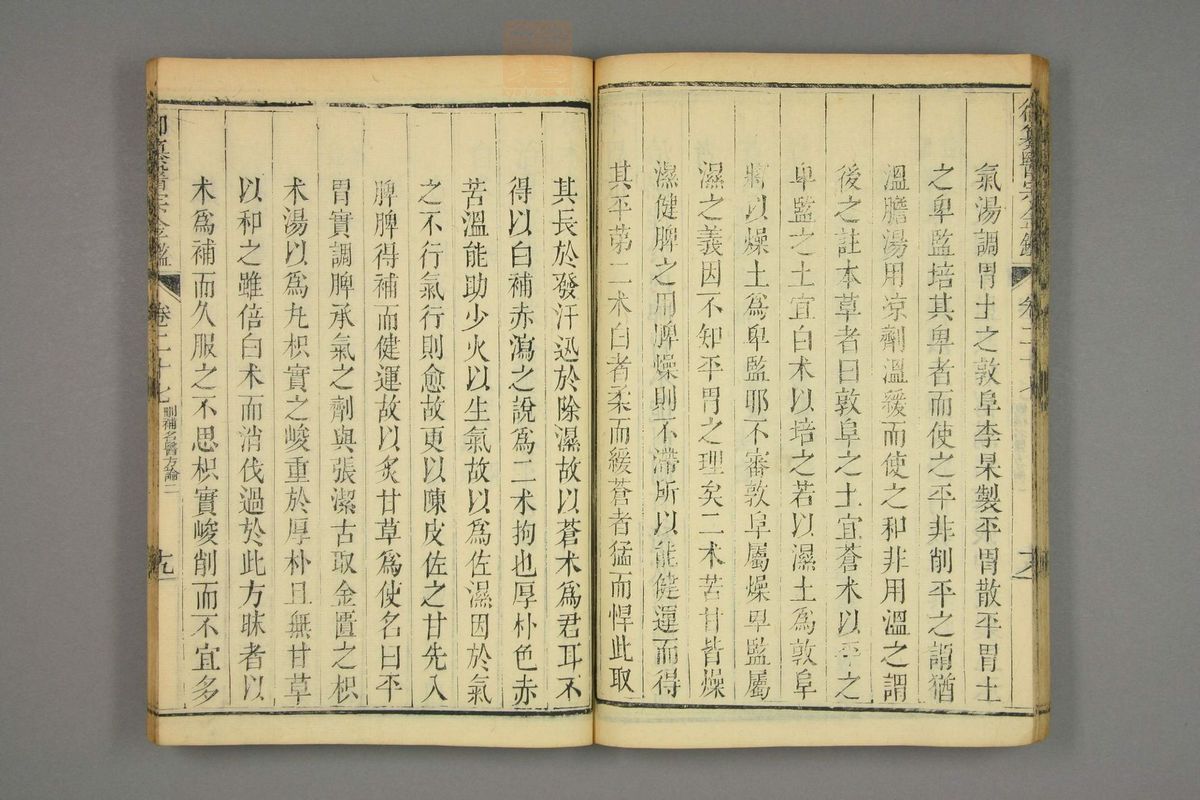 氣湯調胃土之敦阜李杲製平胃散平胃土
之卑監培其卑者而使之平非削平之謂猶
溫膽湯用涼劑溫緩而使之和非用溫之謂
後之註本草者曰敦阜之土宜蒼术以平之
卑監之土宜白术以培之若以濕土為敦阜
將以燥土為卑監耶不審敦阜屬燥卑監屬
濕之義因不知平胃之理矣二术苦甘皆燥
濕健脾之用脾燥則不滯所以能健運而得
其平第二术白者柔而緩蒼者猛而悍此取
其長於發汗迅於除濕故以蒼术爲君耳不
得以白補赤瀉之說爲二术拘也厚朴色赤
苦溫能助少火以生氣故以爲佐濕因於氣
之不行氣行則愈故更以陳皮佐之甘先入
脾脾得補而健運故以炙甘草爲使名曰平
胃實調脾承氣之劑與張潔古取金匱之枳
术湯以爲丸枳實之峻重於厚朴且無甘草
以和之雖倍白术而消伐過於此方昧者以
术爲補而久服之不思枳實峻削而不宜多
御纂醫宗金鑑
卷二十七
刪補名醫方論二
十九